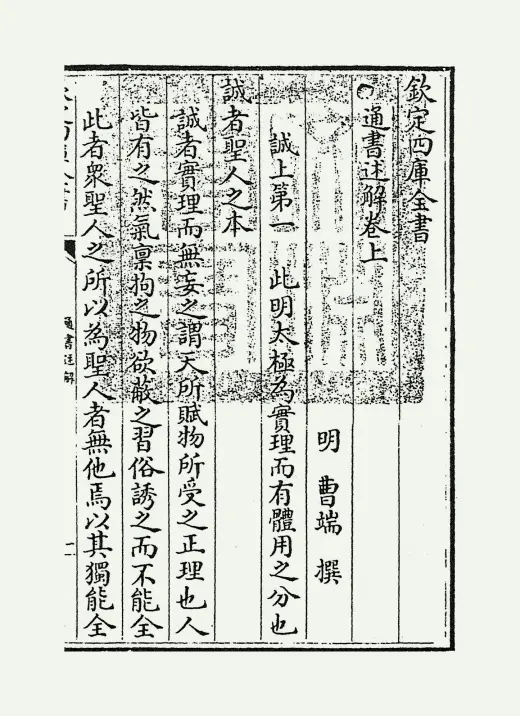 欽定四庫全書
通書述解卷上
明 曹端 撰
誠上第一 此明太極為實理而有體用之分也
誠者聖人之本
誠者實理而無妄之謂天所賦物所受之正理也人
皆有之然氣稟拘之物欲蔽之習俗誘之而不能全
此者衆聖人之所以為聖人者無他焉以其獨能全
通書述解